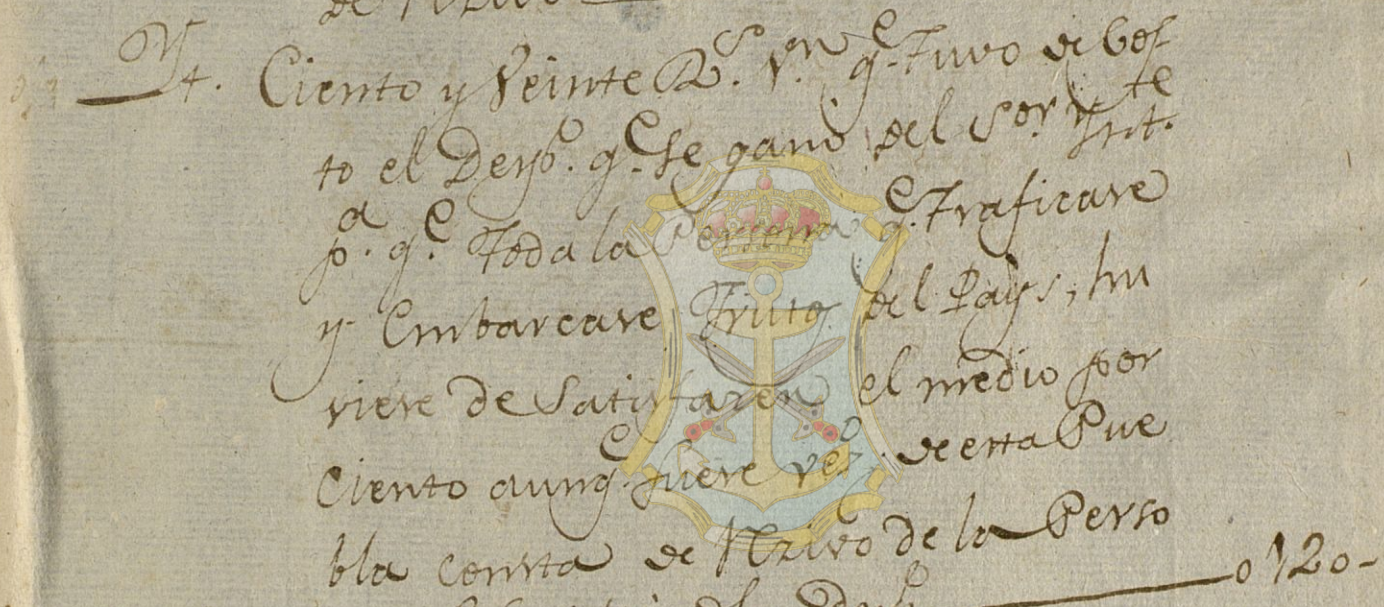 de Rzivo
Yt. Ciento y Veinte Rs. Vn. qe. Tuvo de Cos-
to el Depo. qe. se gano del Sor. Yntte.
pa. qe. Toda la Persona qe. Traficare
y Embarcare Fruto del Pays, hu
viere de Satisfazer el medio por
Ciento aunqe. fuere vezo. de esta Pue
bla consta de Rzivo de la Perso
0120-